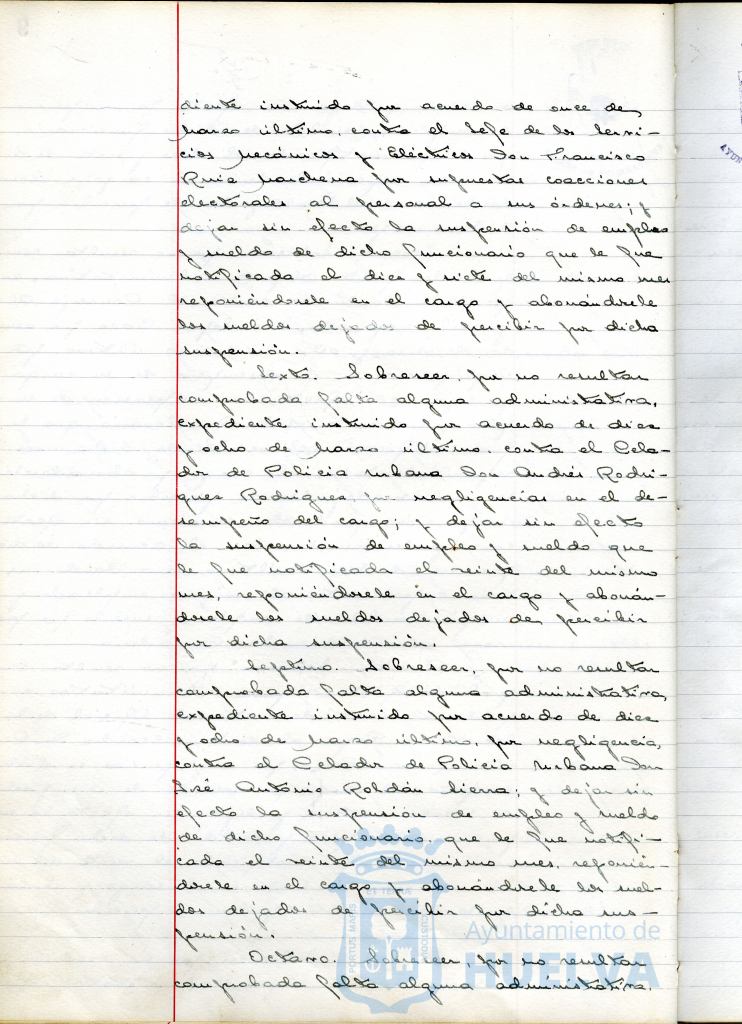 diente instruido por acuerdo de once de
Marzo último, contra el Jefe de los Servi-
cios Mecánicos y Eléctricos Don Francisco
Ruiz Marchena por supuestas coacciones
electorales al personal a sus órdenes; y
dejar sin efecto la suspensión de empleo
y sueldo de dicho funcionario que le fue
notificada el diez y siete del mismo mes
reponiéndosele en el cargo y abonándosele
los sueldos dejados de percibir por dicha
suspensión.
Sexto. Sobreseer, por no resultar
comprobada falta alguna administrativa,
expediente instruido por acuerdo de diez
y ocho de Marzo último, contra el Cela-
dor de Policia urbana Don Andrés Rodri-
guez Rodriguez, por negligencias en el de-
sempeño del cargo; y dejar sin efecto
la suspensión de empleo y sueldo que
le fue notificada el veinte del mismo
mes, reponiéndosele en el cargo y abonán-
dosele los sueldos dejados de percibir
por dicha suspensión.
Septimo. Sobreseer, por no resultar
comprobada falta alguna administrativa,
expediente instruido por acuerdo de diez
y ocho de Marzo último, por negligencia,
contra el Celador de Policia urbana Don
José Antonio Roldán Sierra; y dejar sin
efecto la suspensión de empleo y sueldo
de dicho funcionario, que le fue notifi-
cada el veinte del mismo mes, reponién-
dosele en el cargo y abonándosele los suel-
dos dejados de percibir por dicha sus-
pensión.
Octavo. Sobreseer, por no resultar
comprobada falta alguna administrativa,
Ayuntamiento de
HUELVA
PORTUS MARIS
ET TERRÆ
CUSTODIA
AYUN